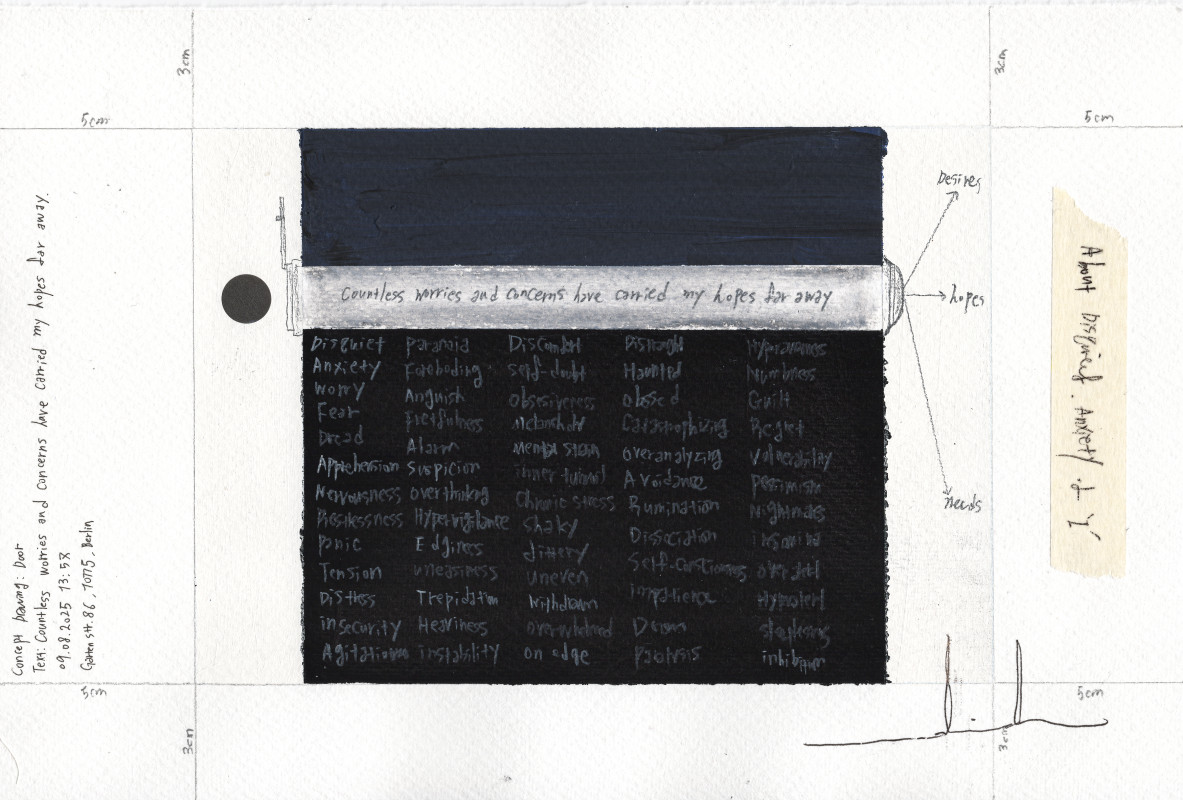 3cm
3cm
5cm
5cm
Desires
hopes
needs
Countless worries and concerns have carried my hopes far away
Disquiet Paranoia Discomfort Distraught
Anxiety Foreboding Self-doubt Haunted Numbness
Worry Anguish Obsesiveness Guilt
Fear Fretfulness Catastrophizing Regret
Dread Alarm Mental Strain Overanalyzing Vulnerability
Apprehension Suspicion inner Avoidance Pessimism
Nervousness Overthinking Chronic stress Rumination Nightmares
Restlessness Hypervigilance Shaky Dissociation
Panic Edginess Jittery
Tension uneasiness uneven
Distress Trepidation Withdrawn impatience
insecurity Heaviness overwhelmed
Agitation instability on edge
5cm
5cm
3cm
3cm
Concept Drawing: Door
Text: Countless worries and concerns have carried my hopes far away.
09.08.2025 13:5X
Gartenstr.86, 10115, Berlin
About Disquiet. Anxiety &